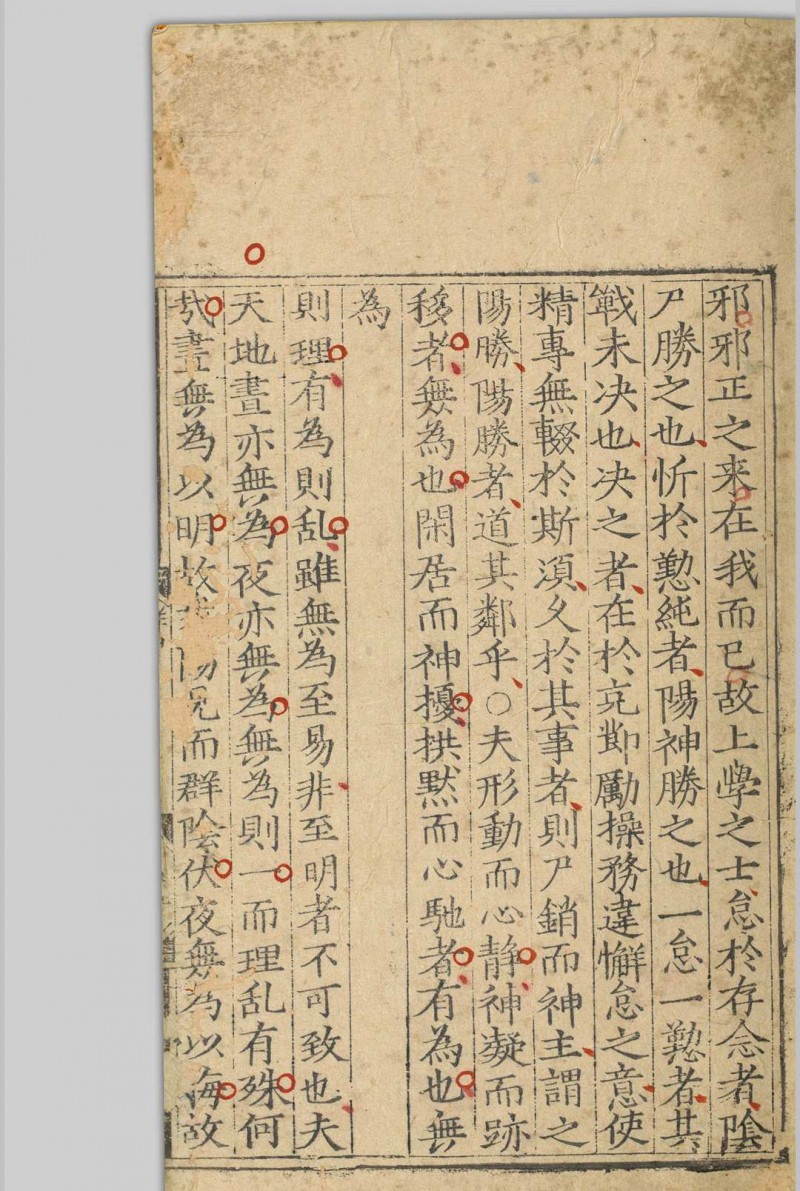 邪邪正之来在我而已故上學之士怠於存念者陰
尸勝之也忻於懃純者陽神勝之也一怠一懃者其
戰未决也决之者在於克節勵操務違懈怠之意使
精專無輟於斯湏久於其事者則尸銷而神主謂之
陽勝陽勝者道其鄰乎○夫形動而心静神凝而跡
移者無為也閑居而神擾拱黙而心馳者有為也無
為
則理有為則乱雖無為至易非至明者不可致也夫
天地晝亦無為夜亦無為無為則一而理乱有殊何
㢤晝無為以明故陽見而群陰伏夜無為以晦故